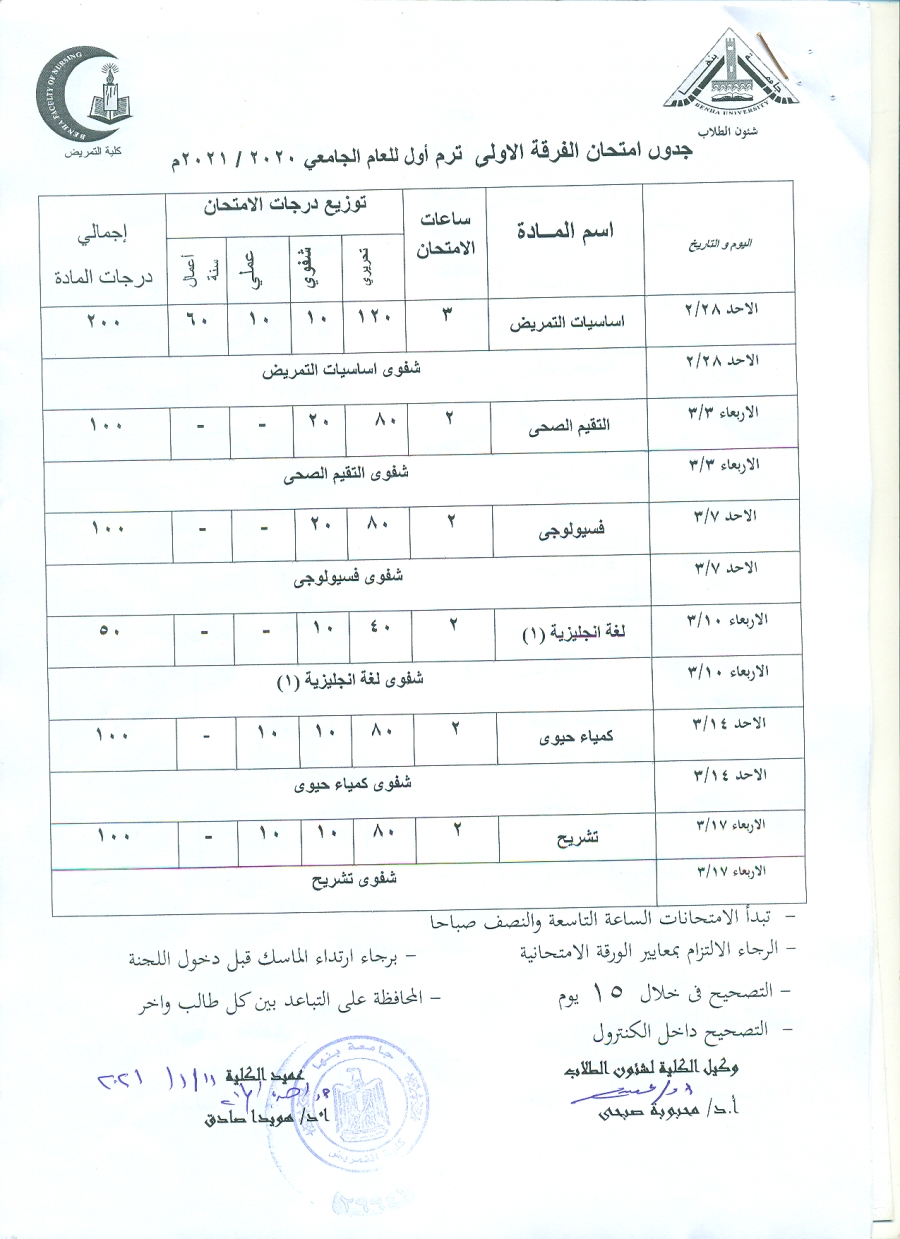 BENHA FACULTY OF NURSING
كلية التمريض
جامعة بنها
BENHA UNIVERSITY
شئون الطلاب
جدول امتحان الفرقة الاولى ترم أول للعام الجامعي ٢٠٢٠ / ٢٠٢١م
اليوم و التاريخ | اسم المــادة | ساعات الامتحان | توزيع درجات الامتحان | إجمالي درجات المادة
تحريري | شفوي | عملي | أعمال سنة
الاحد ٢/٢٨ | اساسيات التمريض | ٣ | ١٢٠ | ١٠ | ١٠ | ٦٠ | ٢٠٠
الاحد ٢/٢٨ | شفوى اساسيات التمريض
الاربعاء ٣/٣ | التقيم الصحى | ٢ | ٨٠ | ٢٠ | - | - | ١٠٠
الاربعاء ٣/٣ | شفوى التقيم الصحى
الاحد ٣/٧ | فسيولوجى | ٢ | ٨٠ | ٢٠ | - | - | ١٠٠
الاحد ٣/٧ | شفوى فسيولوجى
الاربعاء ٣/١٠ | لغة انجليزية (١) | ٢ | ٤٠ | ١٠ | - | - | ٥٠
الاربعاء ٣/١٠ | شفوى لغة انجليزية (١)
الاحد ٣/١٤ | كمياء حيوى | ٢ | ٨٠ | ١٠ | ١٠ | - | ١٠٠
الاحد ٣/١٤ | شفوى كمياء حيوى
الاربعاء ٣/١٧ | تشريح | ٢ | ٨٠ | ١٠ | ١٠ | - | ١٠٠
الاربعاء ٣/١٧ | شفوى تشريح
- تبدأ الامتحانات الساعة التاسعة والنصف صباحا
- الرجاء الالتزام بمعايير الورقة الامتحانية
- برجاء ارتداء الماسك قبل دخول اللجنة
- التصحيح فى خلال ١٥ يوم
- المحافظة على التباعد بين كل طالب واخر
- التصحيح داخل الكنترول
وكيل الكلية لشئون الطلاب
عميد الكلية
أ.د/ محبوبة صبحى
ا.د/ هويدا صادق
جامعة بنها
كلية التمريض